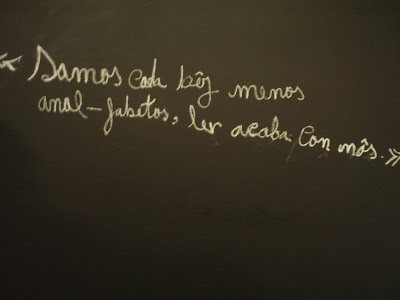 « Samos cada bêz menos
anal-fabetos, ler acaba con nós. »